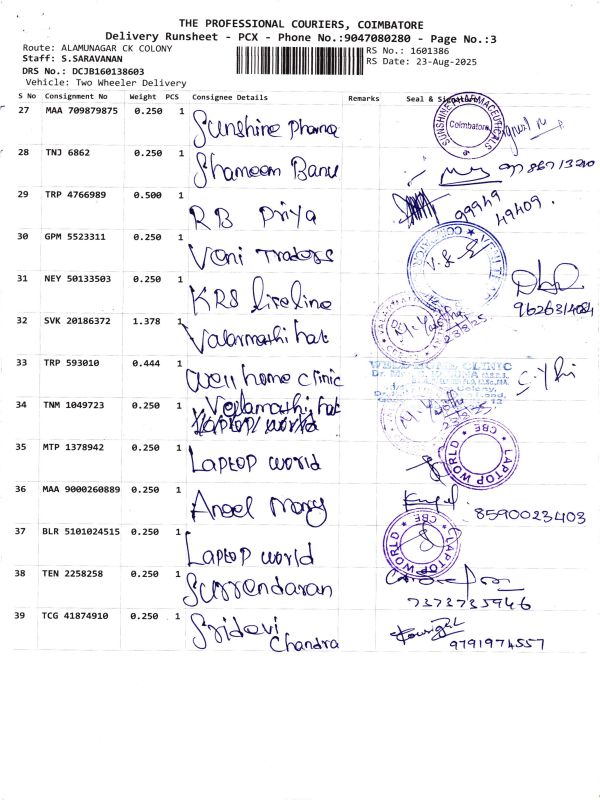 THE PROFESSIONAL COURIERS, COIMBATORE
Delivery Runsheet - PCX - Phone No.:9047080280 - Page No.:3
Route: ALAMUNAGAR CK COLONY
RS No.: 1601386
Staff: S.SARAVANAN
RS Date: 23-Aug-2025
DRS No.: DCJB160138603
Vehicle: Two Wheeler Delivery
S No Consignment No Weight PCS Consignee Details Remarks Seal & Signature
27 MAA 709879875 0.250 1 Sunshine Pharma SUNSHINE PHARMACEUTICALS Coimbatore
28 TNJ 6862 0.250 1 Shameem Banu
29 TRP 4766989 0.500 1 RB Priya 99949 49409.
30 GPM 5523311 0.250 1 Vani Traders
31 NEY 50133503 0.250 1 KRS lifeline 9626314084
32 SVK 20186372 1.378 1 Valarmathi hat
33 TRP 593010 0.444 1 Well home clinic WELL HOME CLINIC
34 TNM 1049723 0.250 1
35 MTP 1378942 0.250 1 Laptop world LAPTOP WORLD CBE
36 MAA 9000260889 0.250 1 8590023403
37 BLR 5101024515 0.250 1 Laptop world LAPTOP WORLD CBE
38 TEN 2258258 0.250 1 Surrendaran 7373735946
39 TCG 41874910 0.250 1 Sridevi Chandra 9791974557